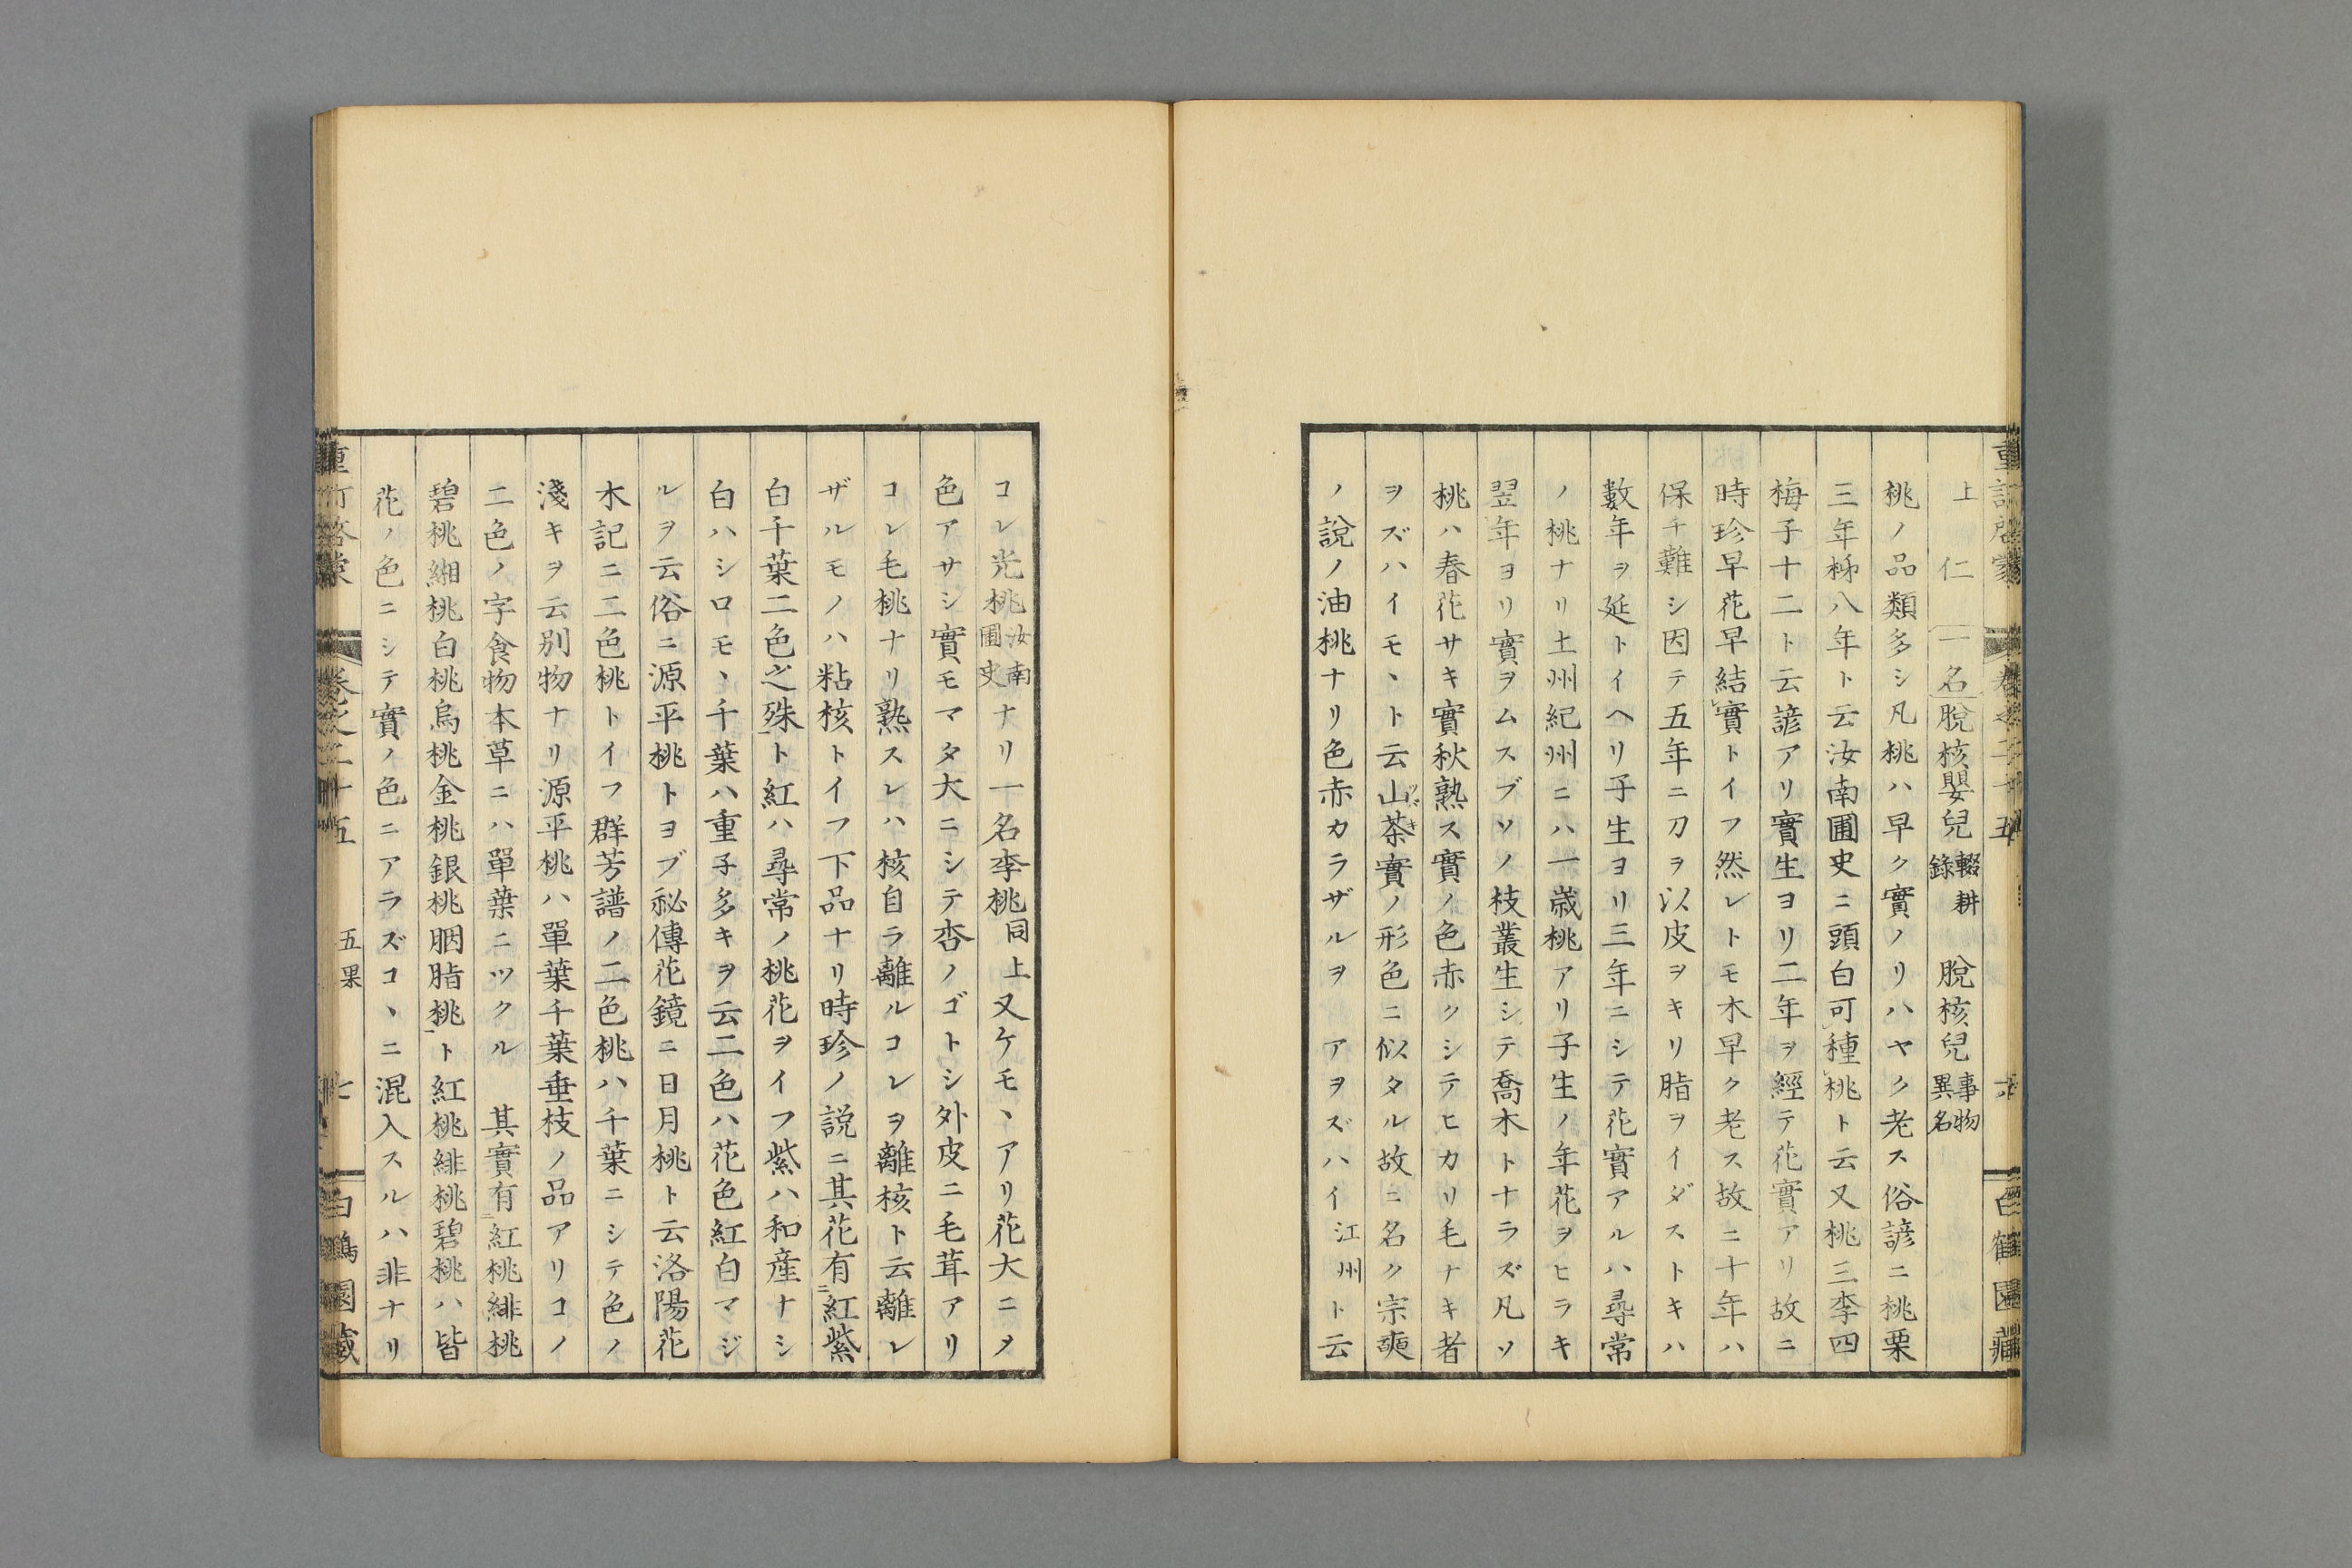 上 仁 一名 脫核嬰兒 輟耕錄 脫核兒 事物異名
桃ノ品類多シ凡桃ハ早ク實ノリハヤク老ス俗諺ニ桃栗
三年柹八年ト云汝南圃史ニ頭白可種桃ト云又桃三李四
梅子十二ト云諺アリ實生ヨリ二年ヲ經テ花實アリ故ニ
時珍早花早結實トイフ然レトモ木早ク老ス故ニ十年ハ
保チ難シ因テ五年ニ刀ヲ以皮ヲキリ脂ヲイダストキハ
數年ヲ延トイヘリ子生ヨリ三年ニシテ花實アルハ尋常
ノ桃ナリ土州紀州ニハ一歲桃アリ子生ノ年花ヲヒラキ
翌年ヨリ實ヲムスブソノ枝叢生シテ喬木トナラズ凡ソ
桃ハ春花サキ實秋熟ス實ノ色赤クシテヒカリ毛ナキ者
ヲズハイモヽト云山茶實ノ形色ニ似タル故ニ名ク宗奭
ノ說ノ油桃ナリ色赤カラザルヲ アヲズハイ 江州 ト云
コレ光桃 汝南圃史 ナリ一名李桃 同上 又ケモヽアリ花大ニメ
色アサシ實モマタ大ニシテ杏ノゴトシ外皮ニ毛茸アリ
コレ毛桃ナリ熟スレハ核自ラ離ルコレヲ離核ト云離レ
ザルモノハ粘核トイフ下品ナリ時珍ノ説ニ其花有紅紫
白千葉二色之殊ト紅ハ尋常ノ桃花ヲイフ紫ハ和産ナシ
白ハシロモヽ千葉ハ重子多キヲ云二色ハ花色紅白マジ
ルヲ云俗ニ源平桃トヨブ祕傳花鏡ニ日月桃ト云洛陽花
木記ニ二色桃トイフ群芳譜ノ二色桃ハ千葉ニシテ色ノ
淺キヲ云別物ナリ源平桃ハ單葉千葉垂枝ノ品アリコノ
二色ノ字食物本草ニハ單葉ニツクル 其實有紅桃緋桃
碧桃緗桃白桃烏桃金桃銀桃胭脂桃ト紅桃緋桃碧桃ハ皆
花ノ色ニシテ實ノ色ニアラズコヽニ混入スルハ非ナリ
卷之二十五 五果 七